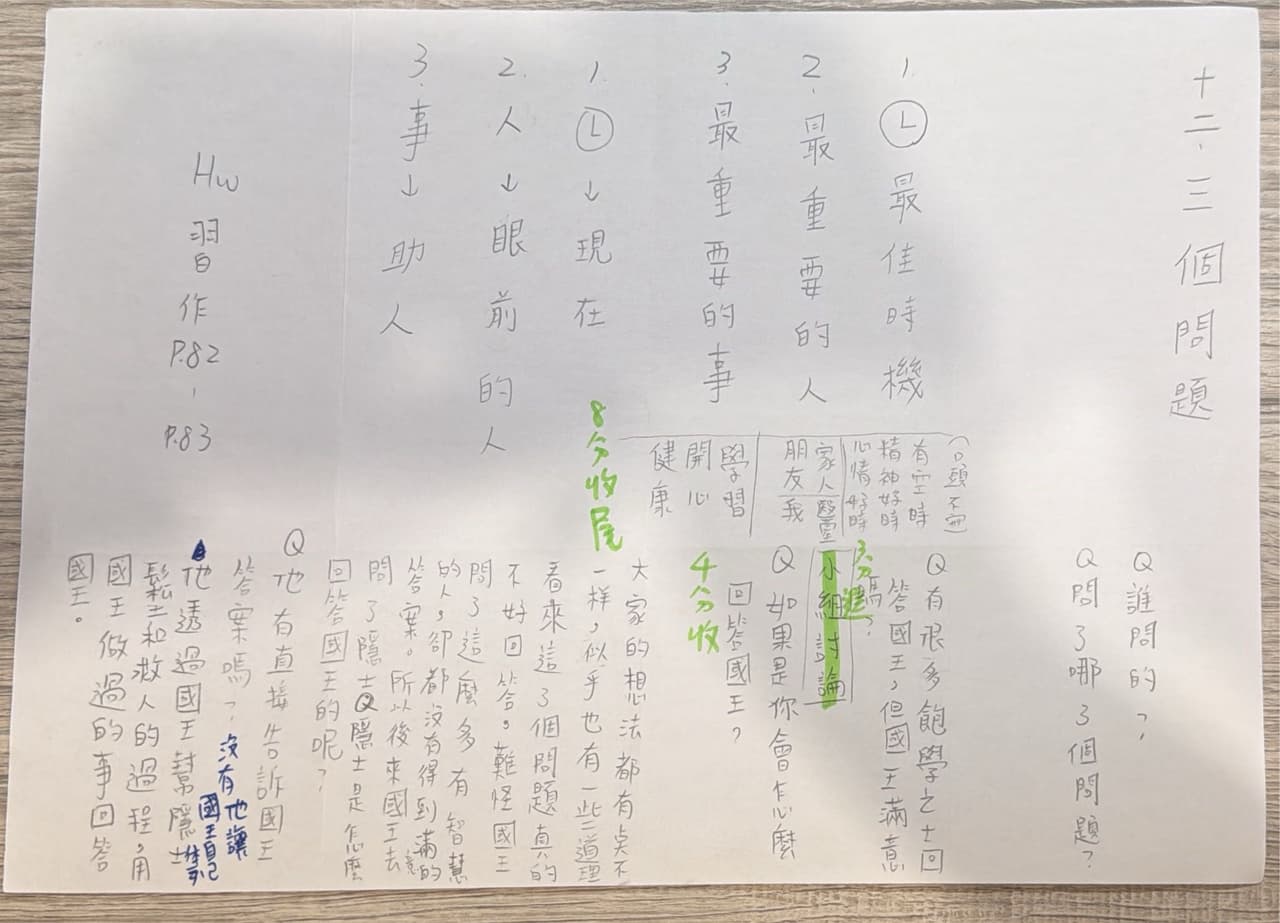 十二、三個問題
1. Ⓛ最佳時機
2. 最重要的人
3. 最重要的事
1. Ⓛ→現在
2. 人→眼前的人
3. 事→助人
Hw
習作
P.82、
P.83
有空時
精神好時
心情好時
家人
朋友
我
學習
開心
健康
Q誰問的?
Q問了哪3個問題?
Q有很多飽學之士回
答國王,但國王滿意
嗎?
小組討論
Q如果是你會怎麼
回答國王?
4分收
8分收尾
大家的想法都有點不
一樣,似乎也有一些道理
看來這3個問題真的
不好回答。難怪國王
問了這麼多有智慧
的人,卻都沒有得到滿意的
答案。所以後來國王去
問了隱士Q隱士是怎麼
回答國王的呢?
Q他有直接告訴國王
答案嗎?沒有他讓
國王自己想
他透過國王幫隱士
鬆土和救人的過程,用
國王做過的事回答
國王。